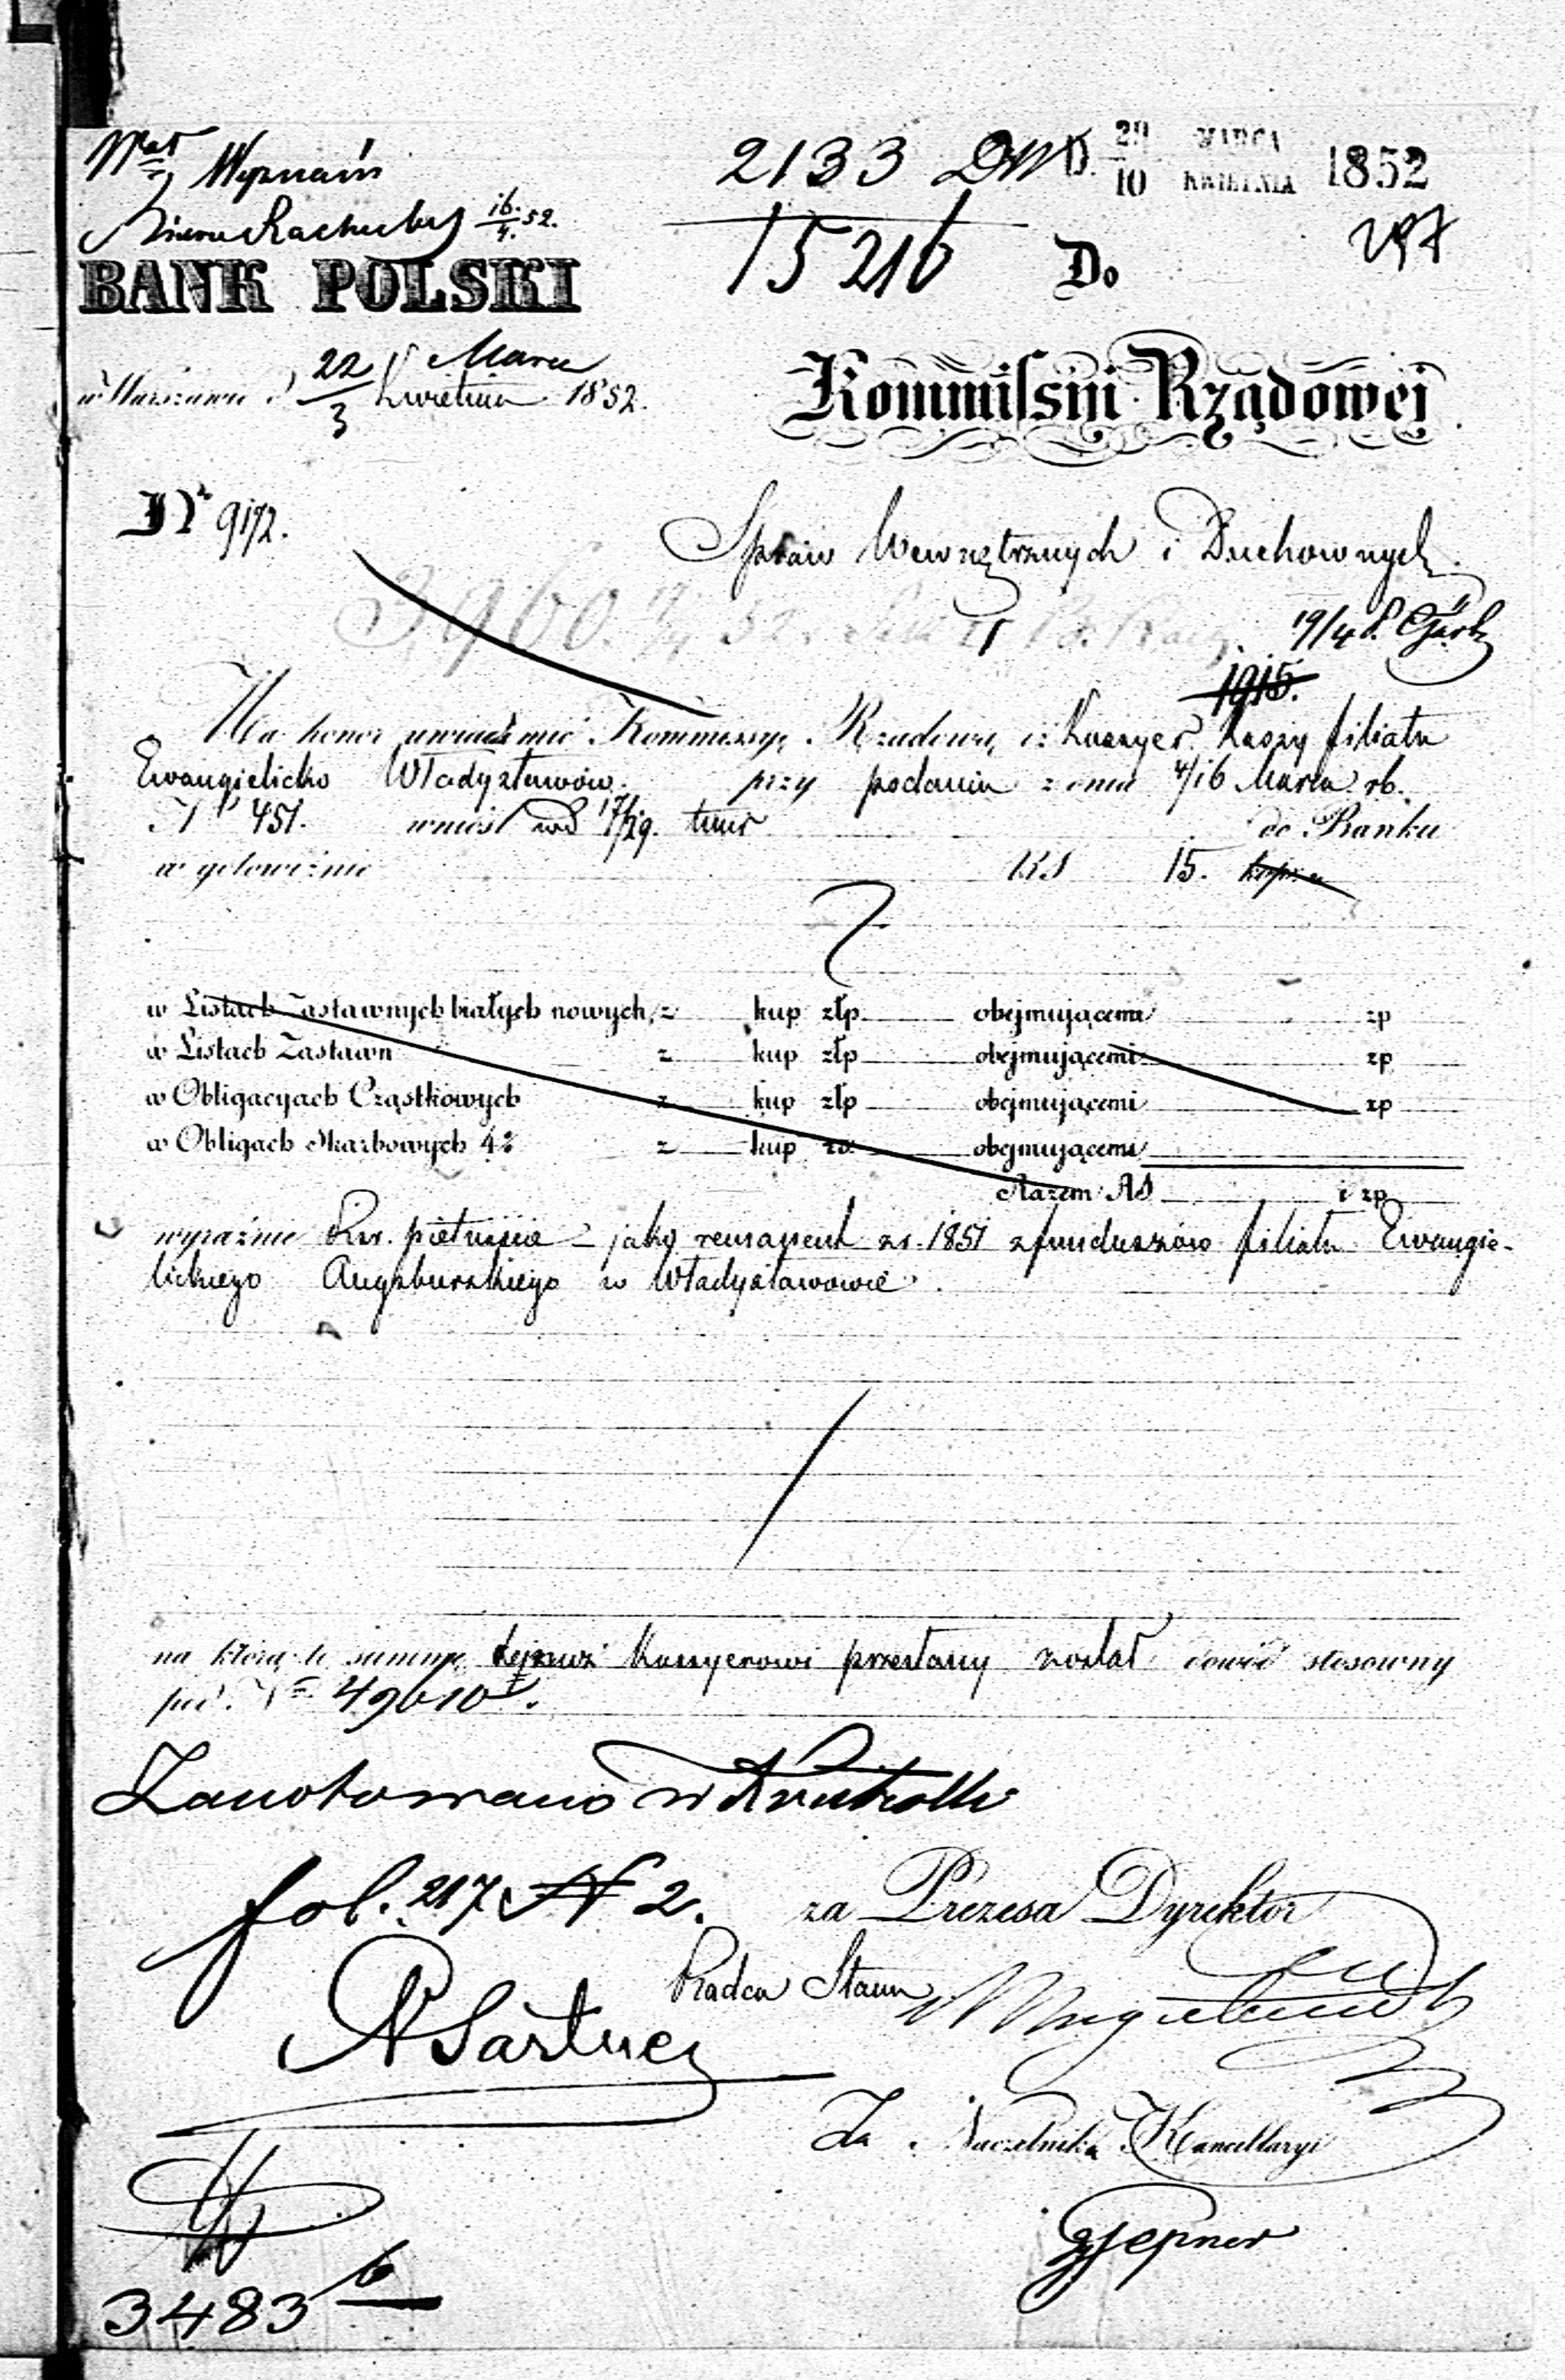 2133
D. 29/10 MARCA KWIETNIA 1852
16/4 52.
15216
297
BANK POLSKI
Do
w Warszawie d 22/3 Marca Kwietnia 1852.
Kommissyi Rządowej
Nr 9172.
Spraw Wewnętrznych i Duchownych
3960.
19/4
1915.
Ma honor uwiadomić Kommissyę Rządową iż Kassyer Kassy filiału
Ewangielicko Władysławów. przy podaniu z dnia 4/16 Marca rb.
N 451. wniósł pod 17/29. tmr do Banku
w gotowiźnie RS 15. kop.
w Listach Zastawnych białych nowych, z kup złp. obejmującemi zp
w Listach Zastawn z kup złp obejmującemi zp
w Obligacyach Cząstkowych z kup złp obejmującemi zp
w Obligach Skarbowych 4% z kup obejmującemi
Razem RS i zp
wyraźnie Rsr. piętnaście – jako remanent z r. 1851 z funduszów filiału Ewangie-
lickiego Augsburskiego w Władysławowie.
na którą to summę tymuż Kassyerowi przesłany został dowód stosowny
pod N 49610
Zanotowano w Kontrolli
fol. 217 N 2.
za Prezesa Dyrektor
Radca Stanu
Za Naczelnika Kancellaryi
3483